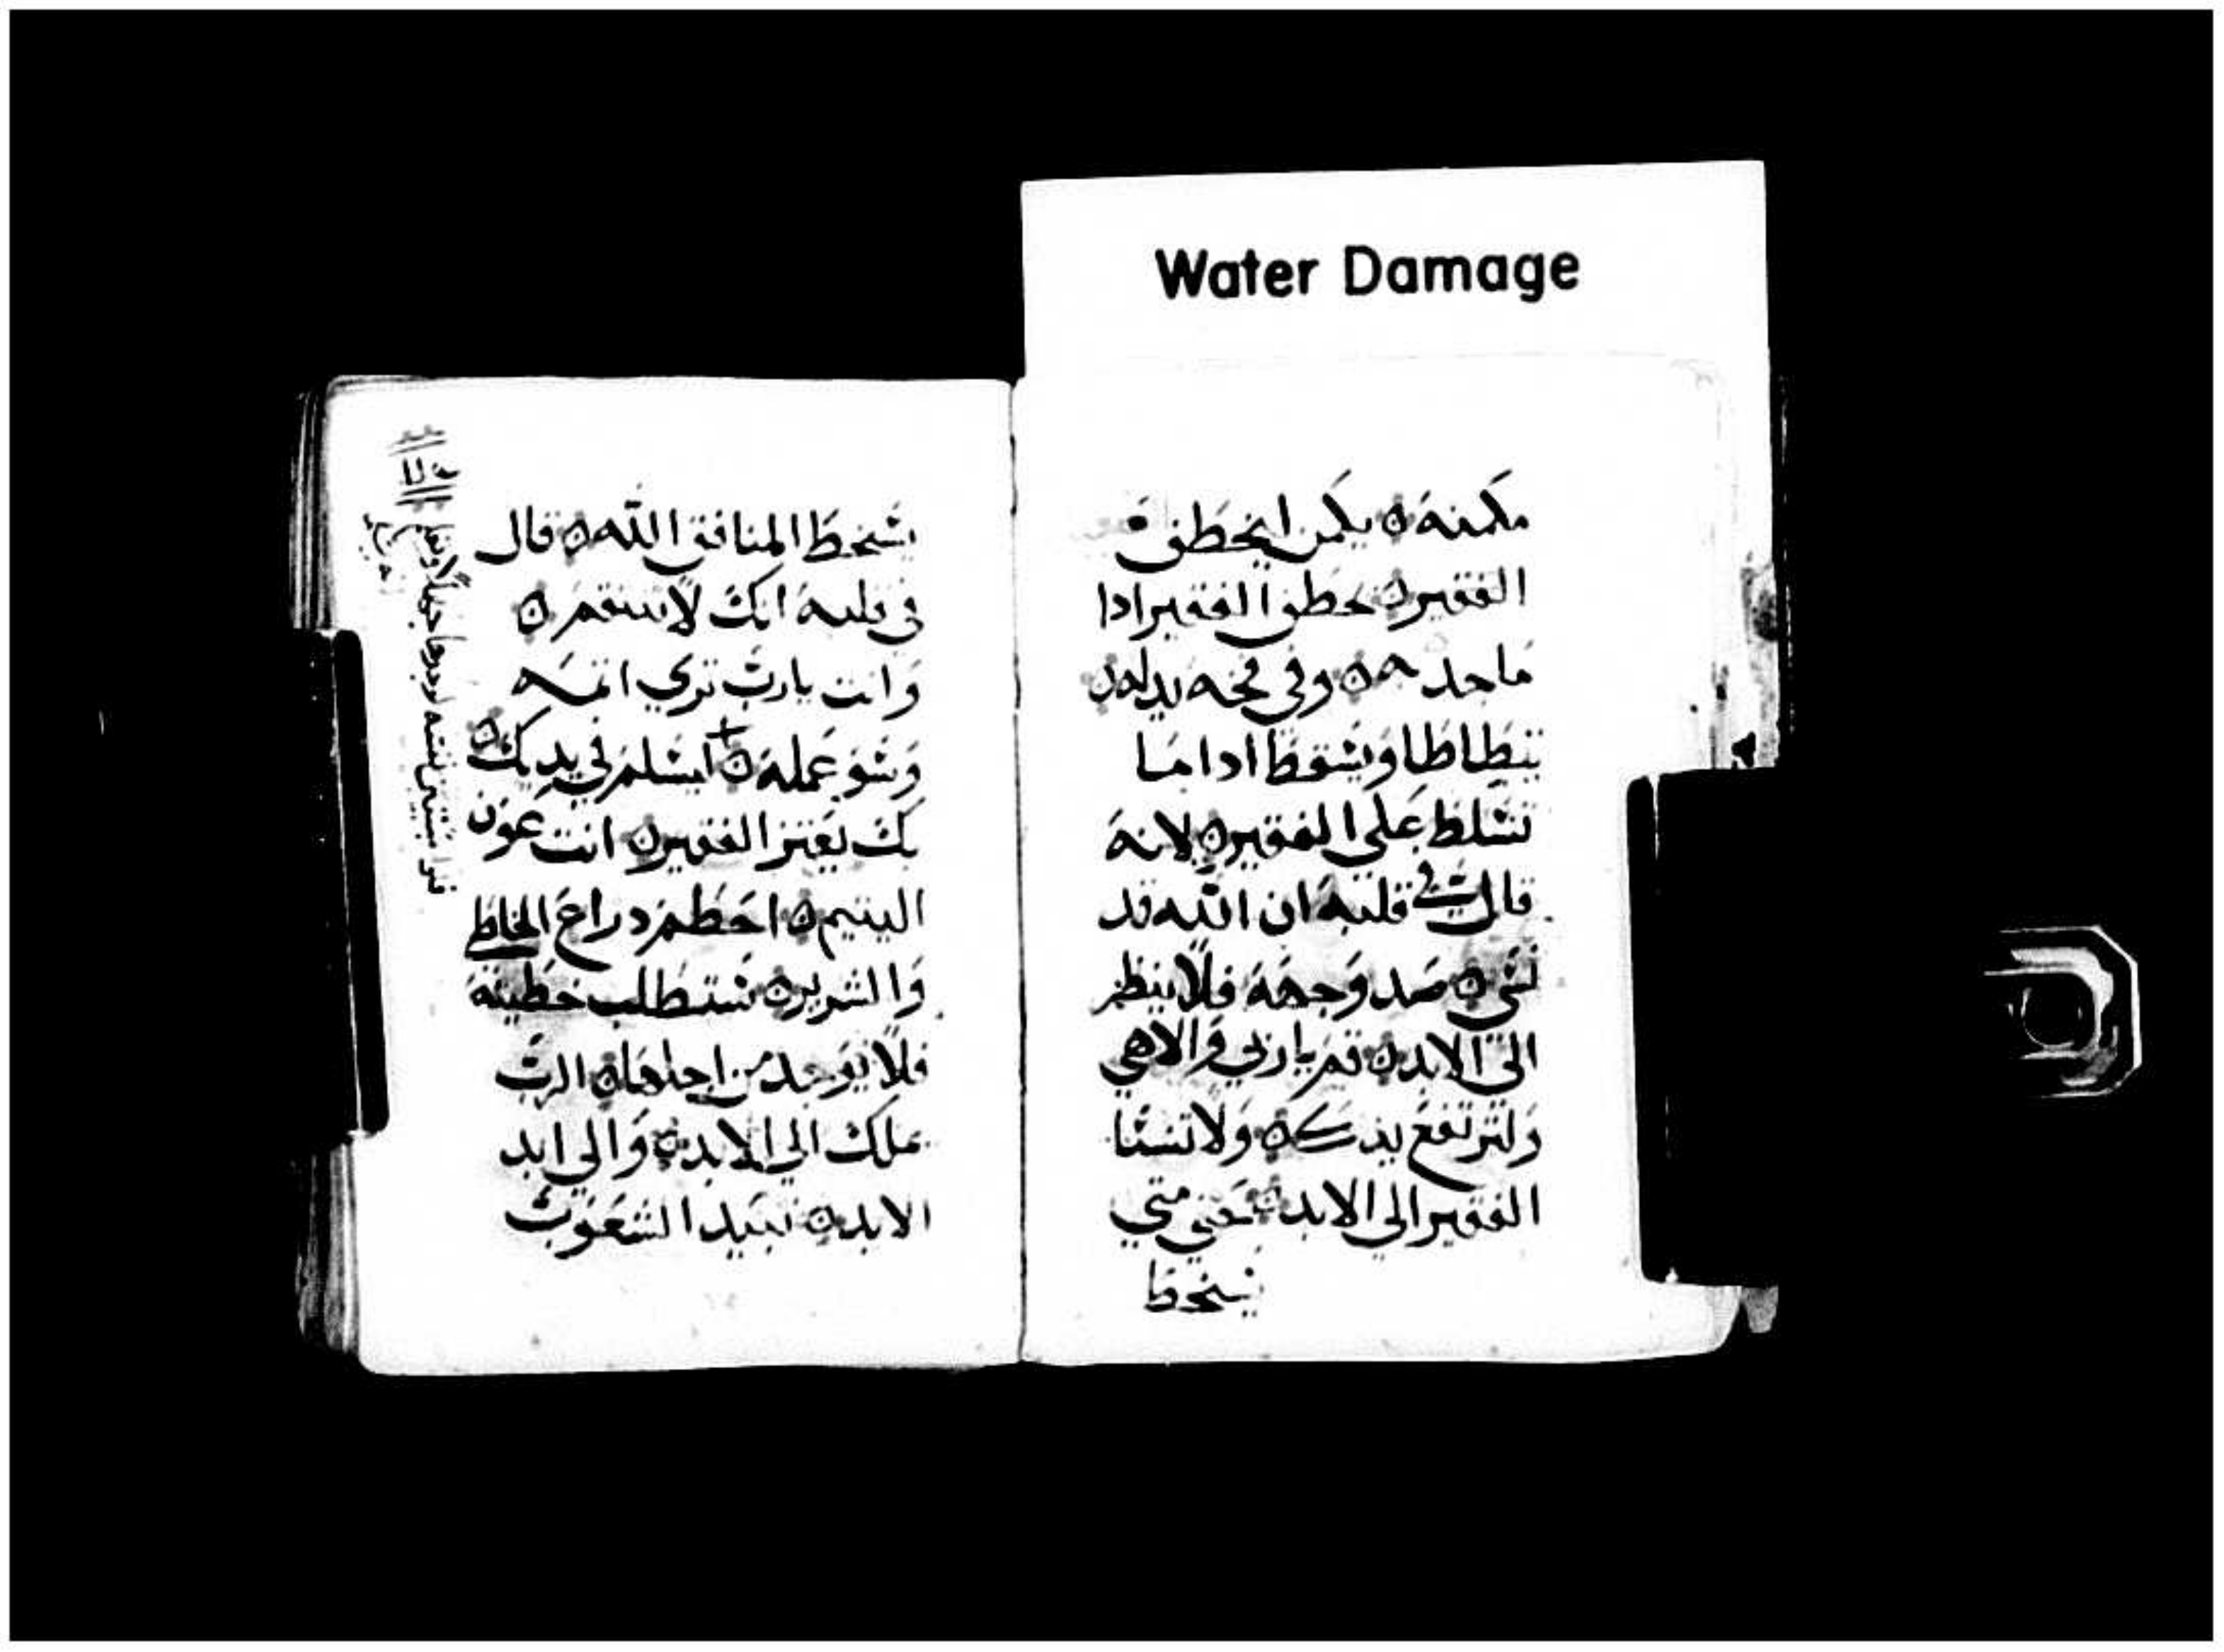 Water Damage
مكمنه ٥ يكمن ليخطف
الفقير ٥ خطف الفقير ادا
ما جد به ٥ وفي فخه يدله ٥
يتطاطا ويسقط ادا ما
تسلط علي الفقير ٥ لانه
قال في قلبه ان الله قد
نسي ٥ صد وجهه فلا ينظر
الي الابد ٥ قم يارب والاهي
ولترتفع يدك ٥ ولا تنسا
الفقير الي الابد ٥ حتي متي
يسخط
يسخط المنافق الله ٥ قال
في قلبه انك لا تنتقم ٥
وانت يارب تري اتمه
وسو عمله ٥ ليسلم في يديك ٥
بك يعتز الفقير ٥ انت عون
اليتيم ٥ احطم دراع الخاطي
والشرير ٥ ستطلب خطيته
فلا توجد من اجلها ٥ الرب
يملك الي الابد ٥ والي ابد
الابد ٥ تبيد الشعوب